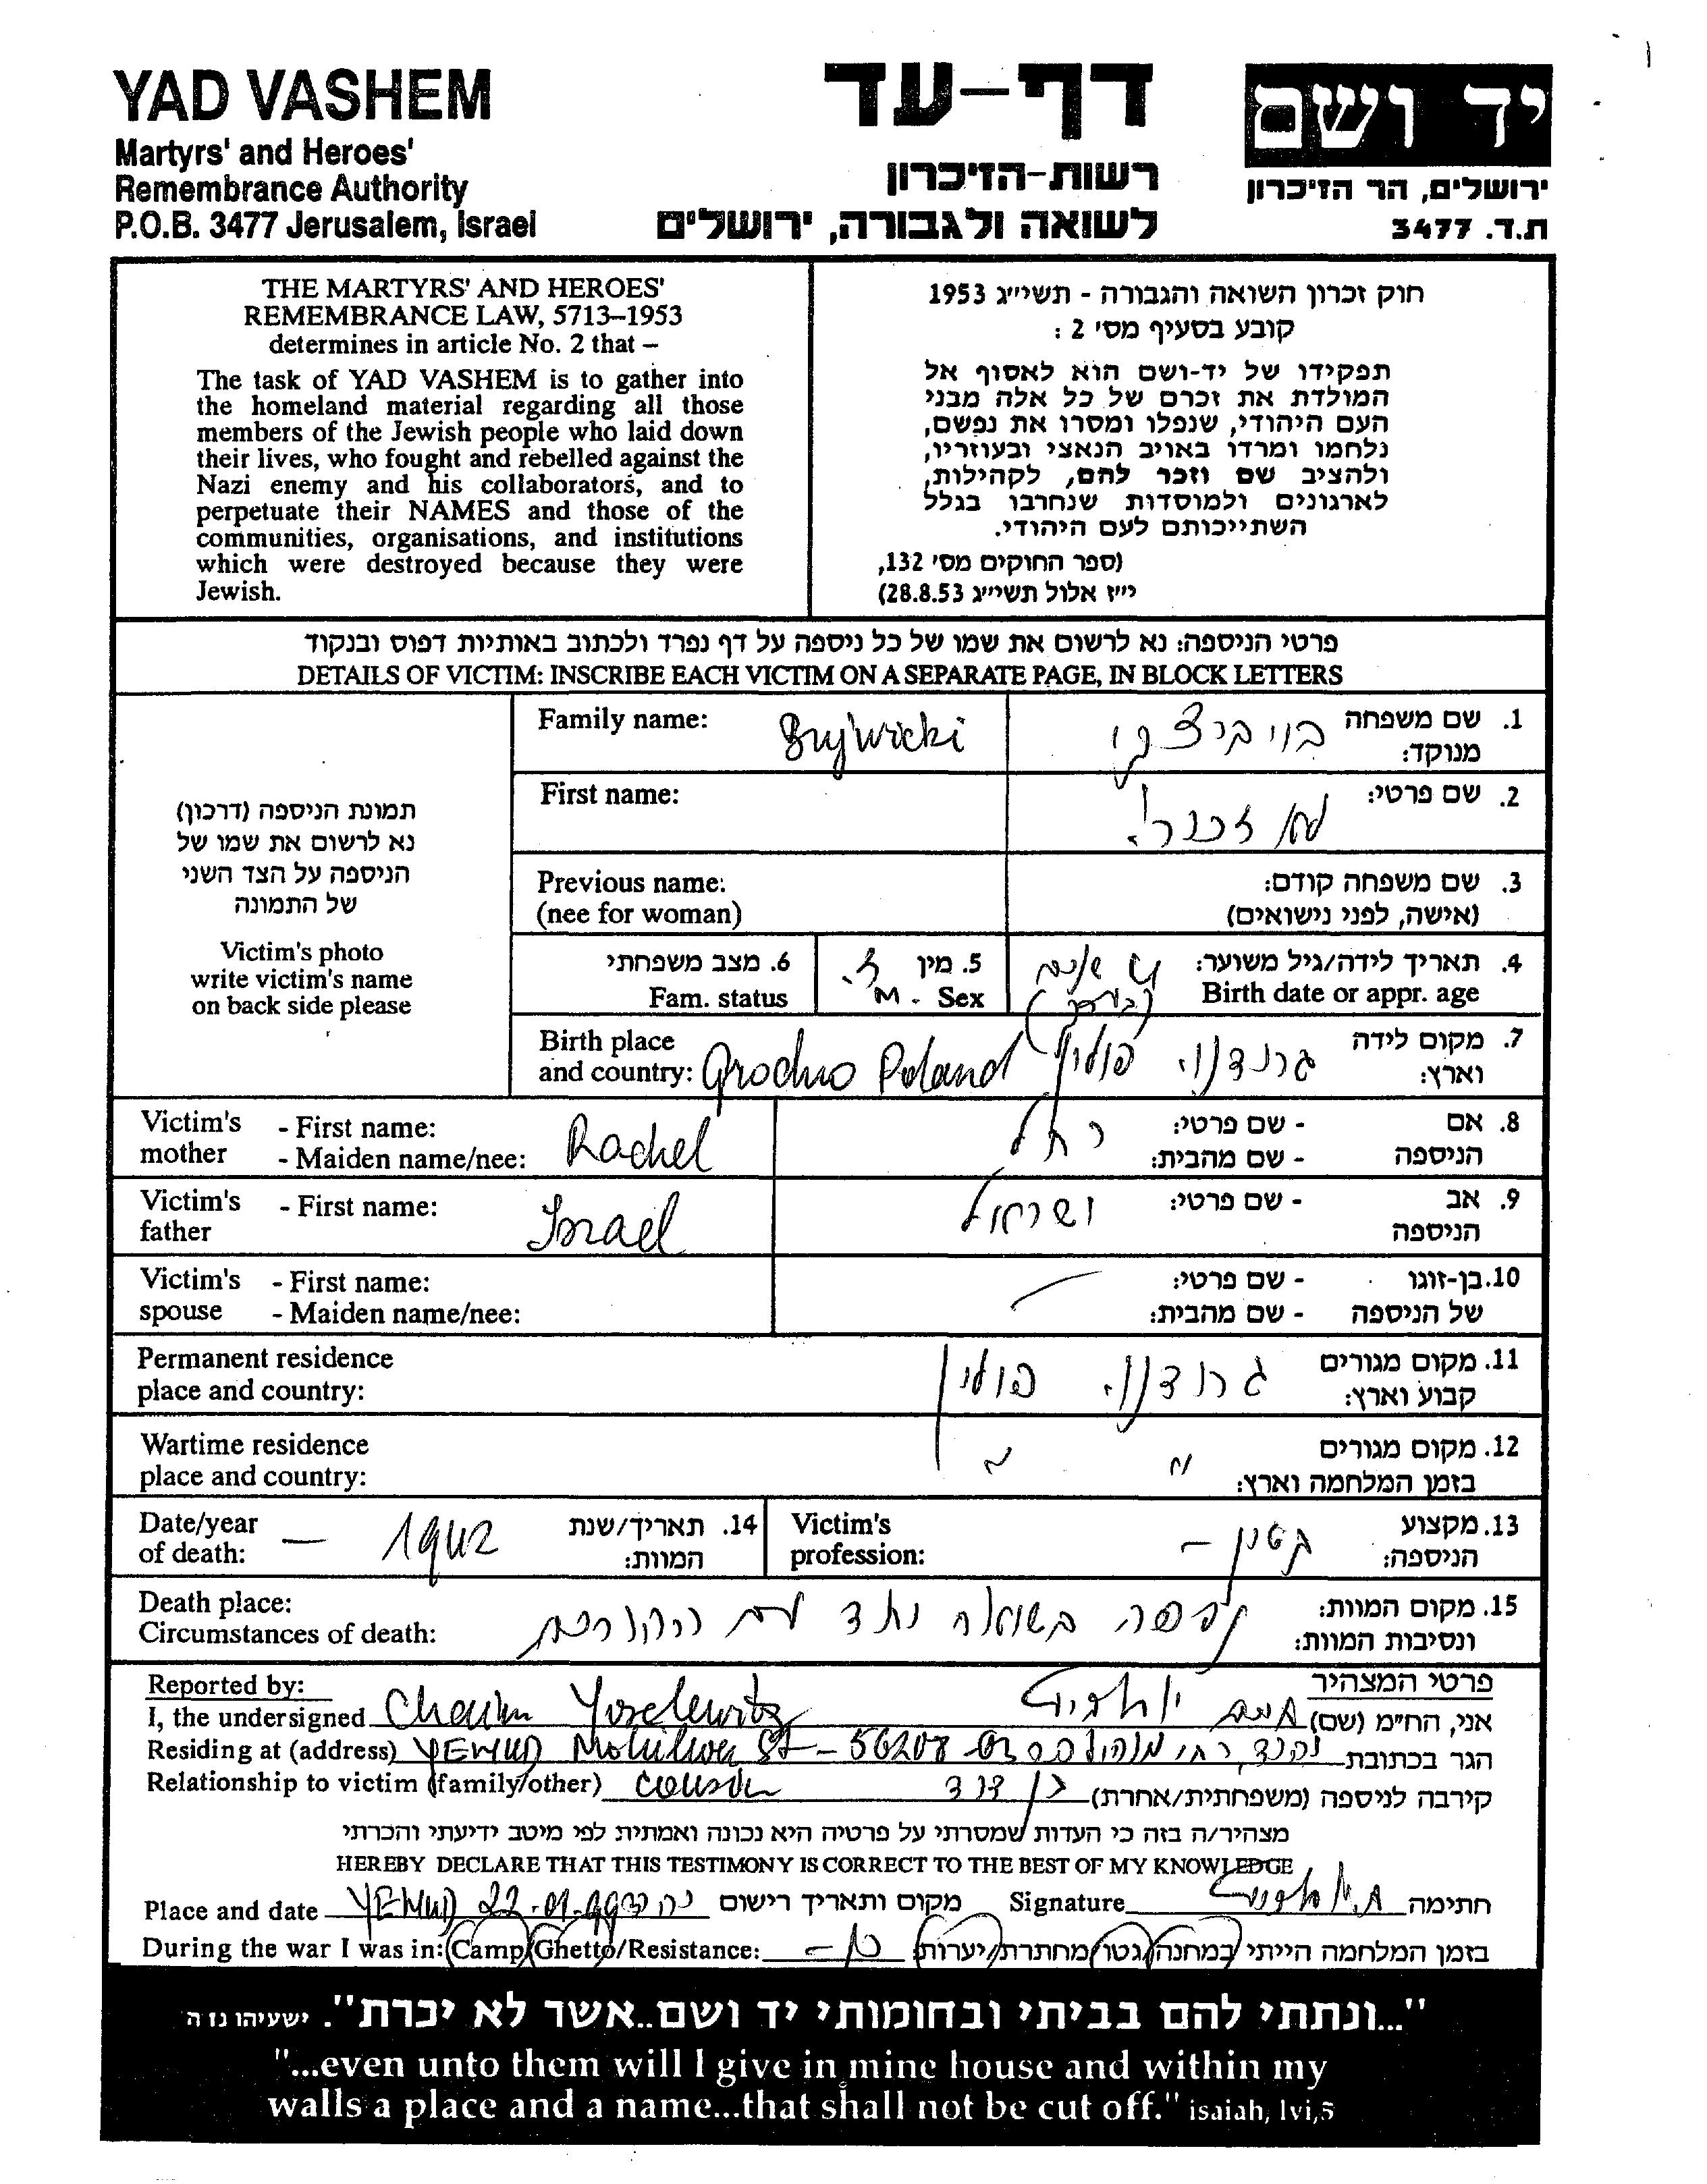 YAD VASHEM
Martyrs' and Heroes'
Remembrance Authority
P.O.B. 3477 Jerusalem, Israel
דף-עד
רשות-הזיכרון
לשואה ולגבורה, ירושלים
יד ושם
ירושלים, הר הזיכרון
ת.ד. 3477
THE MARTYRS' AND HEROES'
REMEMBRANCE LAW, 5713–1953
determines in article No. 2 that –
The task of YAD VASHEM is to gather into
the homeland material regarding all those
members of the Jewish people who laid down
their lives, who fought and rebelled against the
Nazi enemy and his collaborators, and to
perpetuate their NAMES and those of the
communities, organisations, and institutions
which were destroyed because they were
Jewish.
חוק זכרון השואה והגבורה - תשי״ג 1953
קובע בסעיף מס׳ 2 :
תפקידו של יד-ושם הוא לאסוף אל
המולדת את זכרם של כל אלה מבני
העם היהודי, שנפלו ומסרו את נפשם,
נלחמו ומרדו באויב הנאצי ובעוזריו,
ולהציב שם וזכר להם, לקהילות,
לארגונים ולמוסדות שנחרבו בגלל
השתייכותם לעם היהודי.
(ספר החוקים מס׳ 132,
י״ז אלול תשי״ג 28.8.53)
פרטי הניספה: נא לרשום את שמו של כל ניספה על דף נפרד ולכתוב באותיות דפוס ובנקוד
DETAILS OF VICTIM: INSCRIBE EACH VICTIM ON A SEPARATE PAGE, IN BLOCK LETTERS
תמונת הניספה (דרכון)
נא לרשום את שמו של
הניספה על הצד השני
של התמונה
Victim's photo
write victim's name
on back side please
Family name: Bujwicki בויביצקי 1. שם משפחה
מנוקד:
First name: 2. שם פרטי:
Previous name: 3. שם משפחה קודם:
(nee for woman) (אישה, לפני נישואים)
6. מצב משפחתי 5. מין ז. 4. תאריך לידה/גיל משוער:
Fam. status M. Sex Birth date or appr. age
Birth place 7. מקום לידה
and country: Grodno Poland גרודנו. פולין וארץ:
Victim's - First name: - שם פרטי: 8. אם
mother - Maiden name/nee: Rachel רחל - שם מהבית: הניספה
Victim's - First name: - שם פרטי: 9. אב
father Israel ישראל הניספה
Victim's - First name: - שם פרטי: 10. בן-זוגו
spouse - Maiden name/nee: - שם מהבית: של הניספה
Permanent residence 11. מקום מגורים
place and country: גרודנו. פולין קבוע וארץ:
Wartime residence 12. מקום מגורים
place and country: " " בזמן המלחמה וארץ:
Date/year 14. תאריך/שנת Victim's 13. מקצוע
of death: — 1942 המוות: profession: — הניספה:
Death place: 15. מקום המוות:
Circumstances of death: נספה בשואה יחד עם ונסיבות המוות:
Reported by: פרטי המצהיר
I, the undersigned Chaim Yoselewitz חיים אני, הח״מ (שם)
Residing at (address) YEHUD St - 56208 הגר בכתובת
Relationship to victim (family/other) cousin בן דוד קירבה לניספה (משפחתית/אחרת)
מצהיר/ה בזה כי העדות שמסרתי על פרטיה היא נכונה ואמתית לפי מיטב ידיעתי והכרתי
HEREBY DECLARE THAT THIS TESTIMONY IS CORRECT TO THE BEST OF MY KNOWLEDGE
Place and date YEHUD 22.01.99 מקום ותאריך רישום Signature חתימה
During the war I was in: (Camp/Ghetto/Resistance: בזמן המלחמה הייתי במחנה/גטו/מחתרת/יערות:
"...ונתתי להם בביתי ובחומותי יד ושם..אשר לא יכרת". ישעיהו נז ה
"...even unto them will I give in mine house and within my
walls a place and a name...that shall not be cut off." isaiah, lvi,5